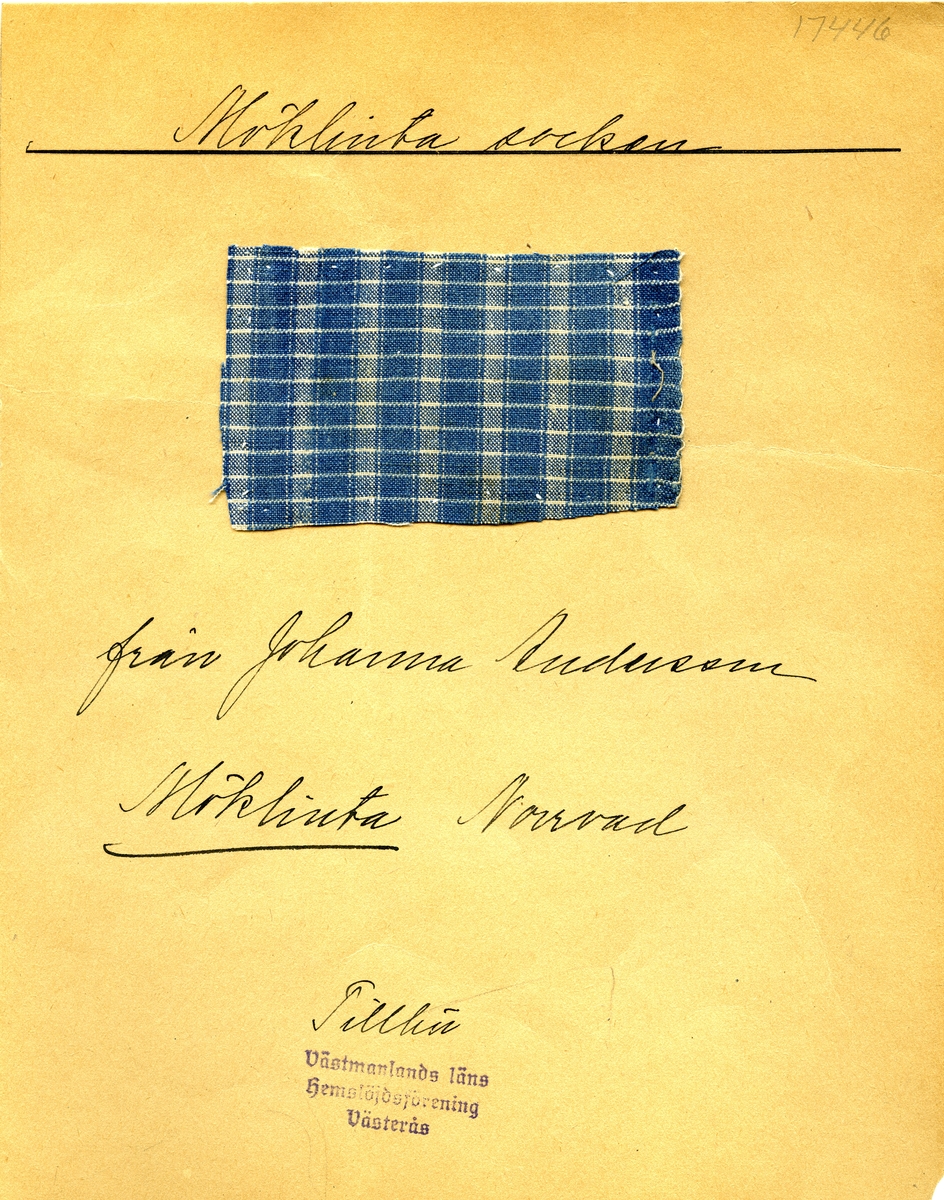 17446
Möklinta socken
från Johanna Andersson
Möklinta Norrvad
Tillhö
Västmanlands läns
Hemslöjdsförening
Västerås